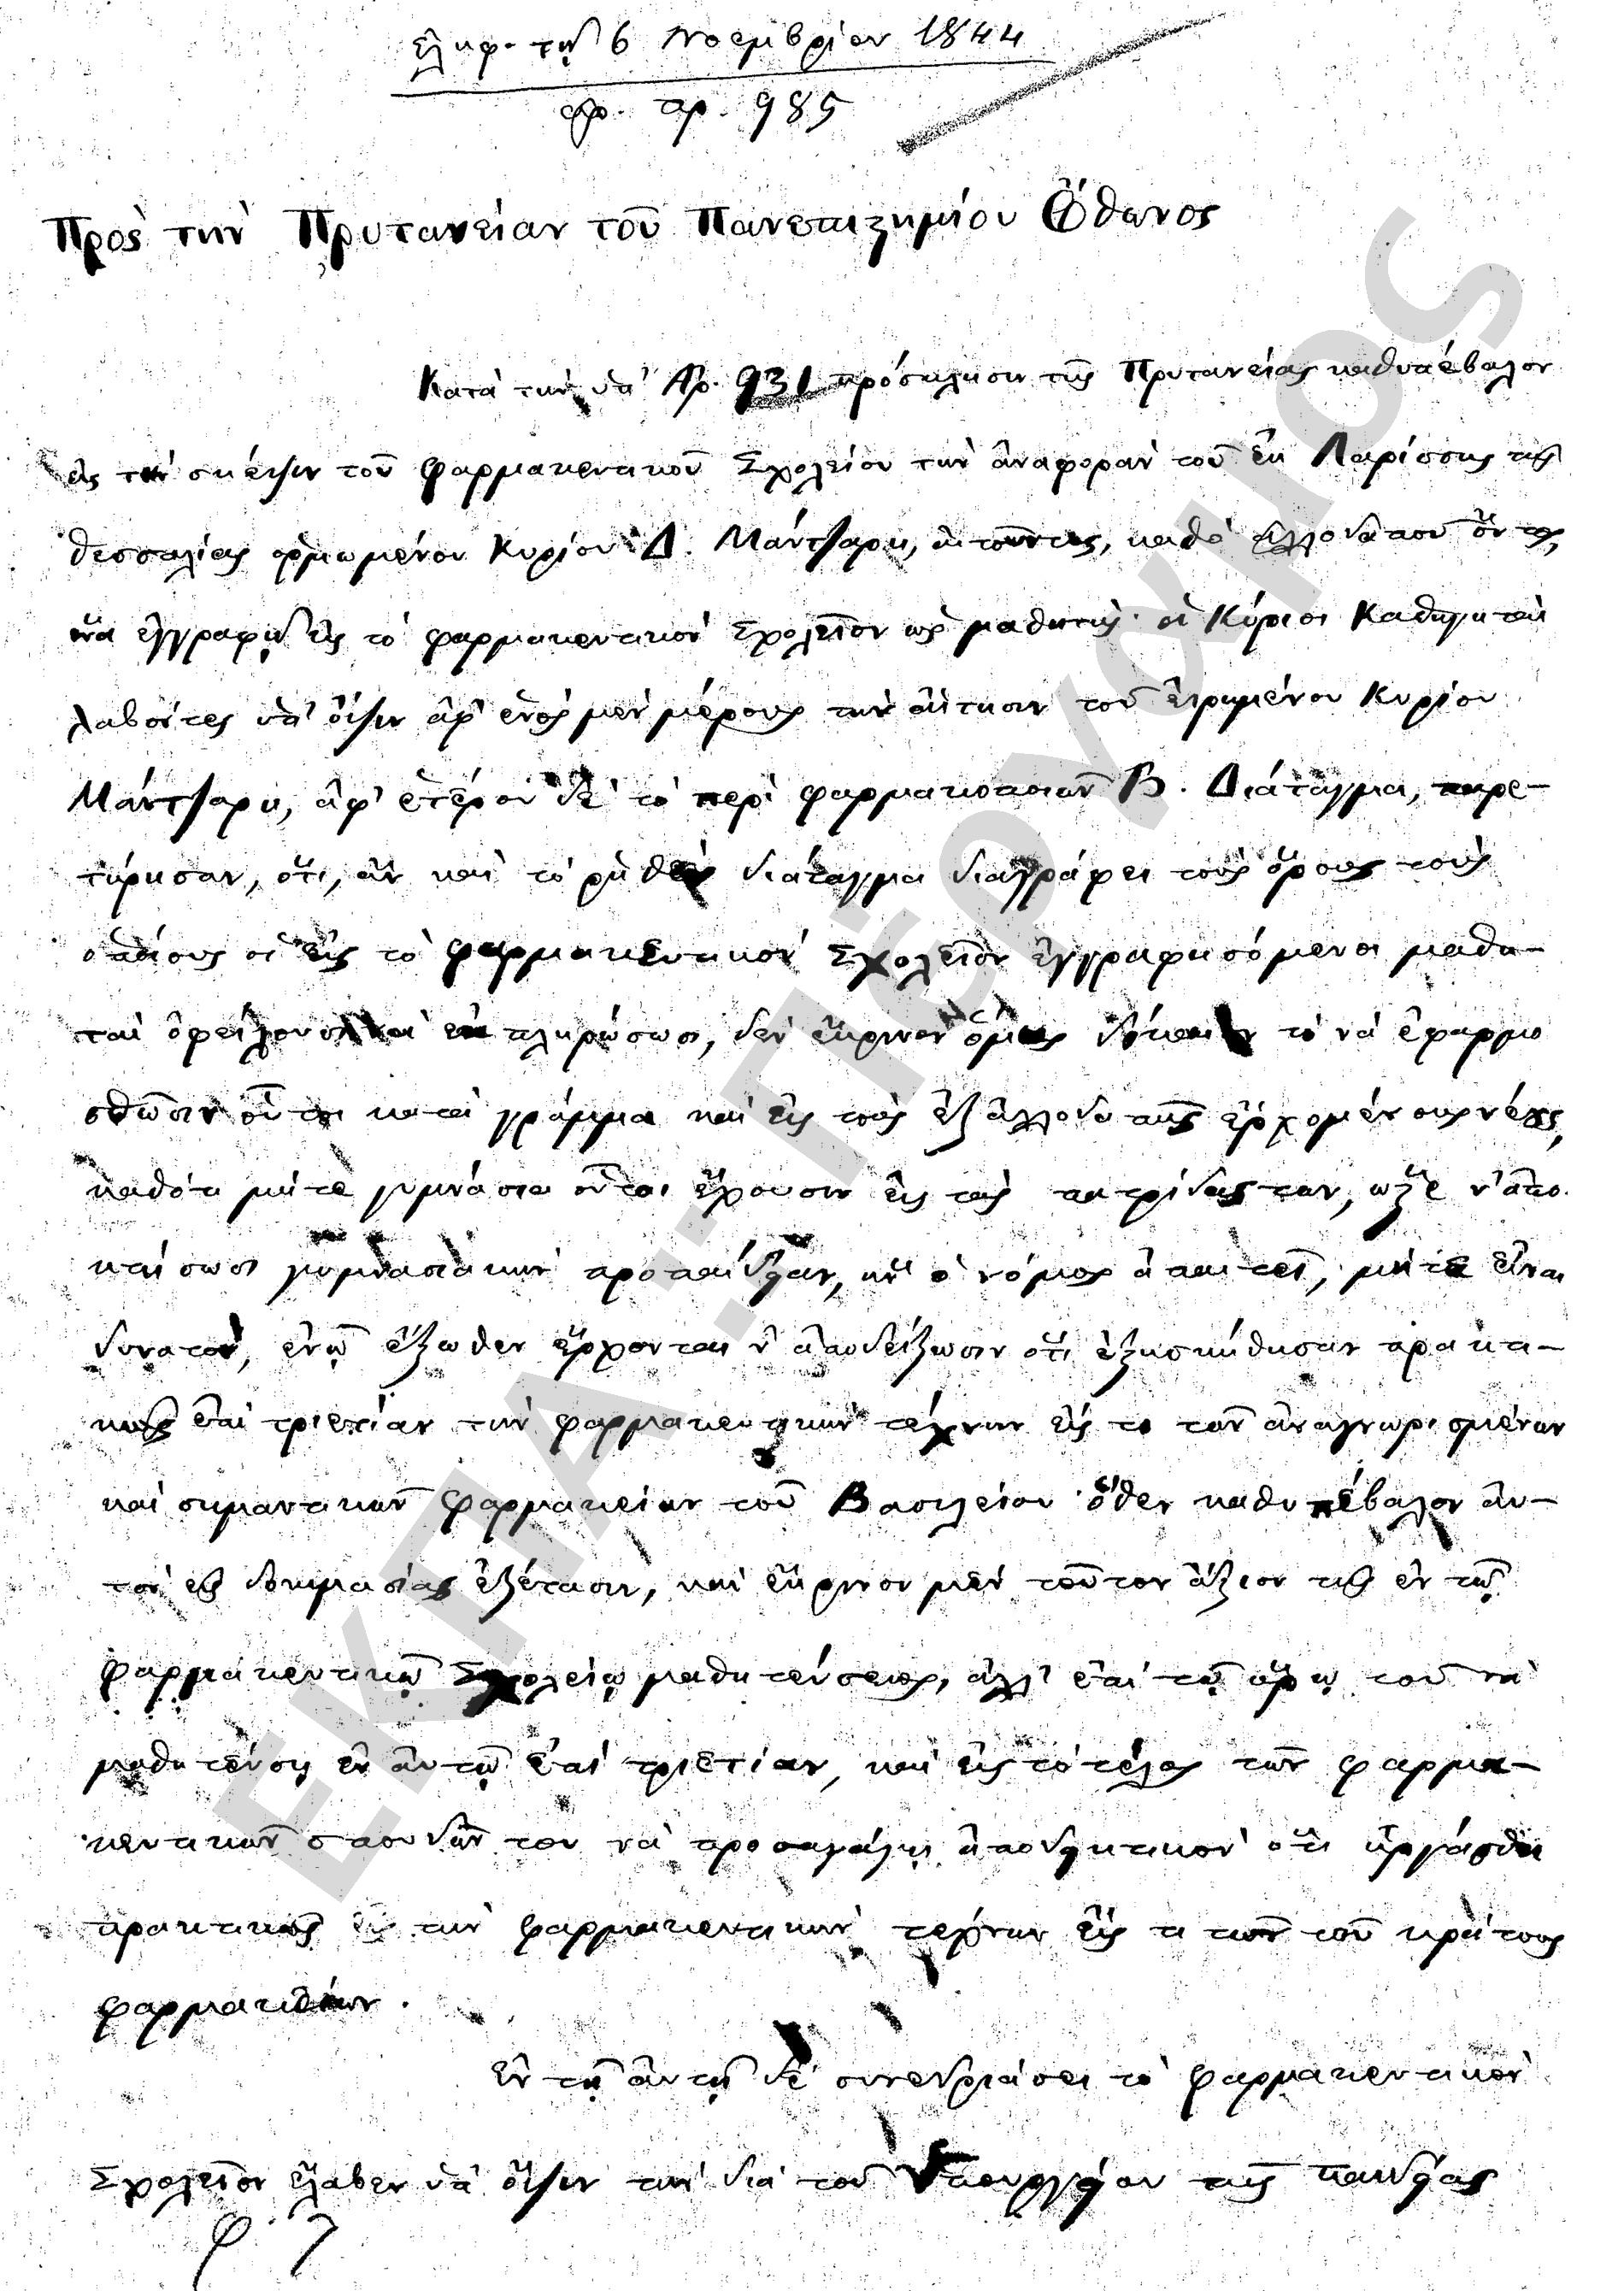 ἐλήφ. τῇ 6 Νοεμβρίου 1844
πρ. αρ. 985
Πρὸς τὴν Πρυτανείαν τοῦ Πανεπιστημίου Ὄθωνος
Κατὰ τὴν ὑπ' Ἀρ. 931 πρόσκλησιν τῆς Πρυτανείας καθυπέβαλον
εἰς τὴν σκέψιν τοῦ φαρμακευτικοῦ Σχολείου τὴν ἀναφορὰν τοῦ ἐκ Λαρίσσης τῆς
Θεσσαλίας ὁρμωμένου Κυρίου Δ. Μάντζαρη, αἰτοῦντος, καθὸ ἀλλοδαποῦ ὄντος,
ἵνα ἐγγραφῇ εἰς τὸ φαρμακευτικὸν Σχολεῖον ὡς μαθητής· οἱ Κύριοι Καθηγηταὶ
λαβόντες ὑπ' ὄψιν ἀφ' ἑνὸς μὲν μέρους τὴν αἴτησιν τοῦ εἰρημένου Κυρίου
Μάντζαρη, ἀφ' ἑτέρου δὲ τὸ περὶ φαρμακοποιῶν Β. Διάταγμα, παρε-
τήρησαν, ὅτι, ἂν καὶ τὸ ῥηθὲν διάταγμα διαγράφει τοὺς ὅρους τοὺς
ὁποίους οἱ εἰς τὸ φαρμακευτικὸν Σχολεῖον ἐγγραφησόμενοι μαθη-
ταὶ ὀφείλουσι νὰ ἐκπληρώσωσι, δὲν ἔκρινον ὅμως δίκαιον τὸ νὰ ἐφαρμο
σθῶσιν οὗτοι κατὰ γράμμα καὶ εἰς τοὺς ἐξ ἀλλοδαπῆς ἐρχομένους νέους,
καθότι μήτε γυμνάσια οὗτοι ἔχουσιν εἰς τὰς πατρίδας των, ὥστε ν' ἀπο
κτήσωσι γυμνασιακὴν προπαίδειαν, ἣν ὁ νόμος ἀπαιτεῖ, μήτε εἶναι
δυνατὸν, ἐνῷ ἔξωθεν ἔρχονται ν' ἀποδείξωσιν ὅτι ἐξησκήθησαν πρακτι-
κῶς ἐπὶ τριετίαν τὴν φαρμακευτικὴν τέχνην εἴς τι τῶν ἀναγνωρισμένων
καὶ σημαντικῶν φαρμακείων τοῦ Βασιλείου ὅθεν καθυπέβαλον αὐ-
τὸν εἰς δοκιμασίας ἐξέτασιν, καὶ ἔκρινον μὲν τοῦτον ἄξιον τῆς ἐν τῷ
φαρμακευτικῷ Σχολείῳ μαθητεύσεως, ἀλλ' ἐπὶ τῷ ὅρῳ τοῦ νὰ
μαθητεύσῃ ἐν αὐτῷ ἐπὶ τριετίαν, καὶ εἰς τὸ τέλος τῶν φαρμα-
κευτικῶν σπουδῶν του νὰ προσαγάγῃ ἀποδεικτικὸν ὅτι εἰργάσθη
πρακτικῶς εἰς τὴν φαρμακευτικὴν τέχνην εἴς τι τῶν τοῦ κράτους
φαρμακείων.
Ἐν τῇ αὐτῇ δὲ συνεδριάσει τὸ φαρμακευτικὸν
Σχολεῖον ἔλαβεν ὑπ' ὄψιν τὴν διὰ τοῦ Ὑπουργείου τῆς παιδείας